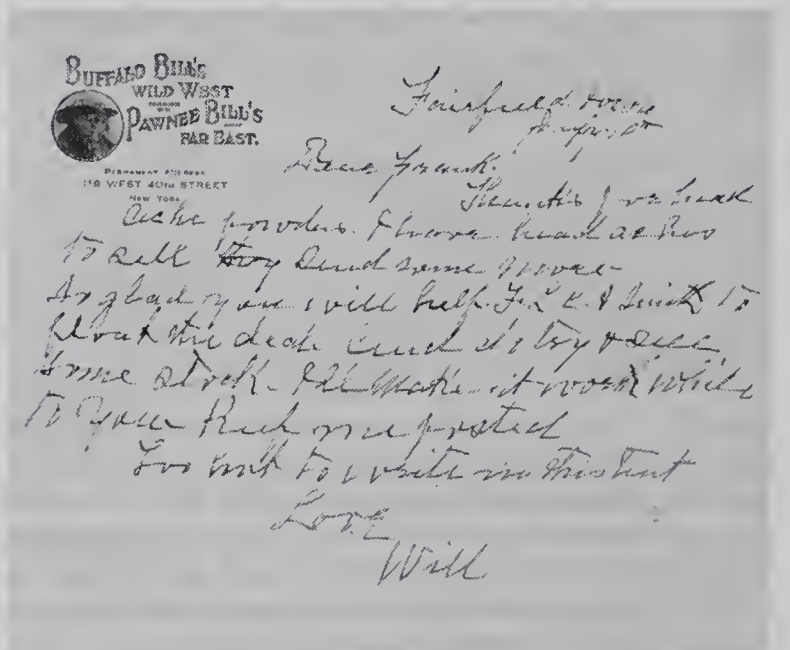 BUFFALO BILL'S
WILD WEST
COMBINED WITH
PAWNEE BILL'S
FAR EAST.
PERMANENT ADDRESS
116 WEST 40TH STREET
NEW YORK
Fairfield Iowa
Dear Frank.
Thanks for head
ache powders. I have head ache two
to sell they Send some more
So glad you will help. to
float the deal. and do try & sell
some stock. I'll make it worth while
to you Keep me posted
Too hot to write in this tent
Love
Will